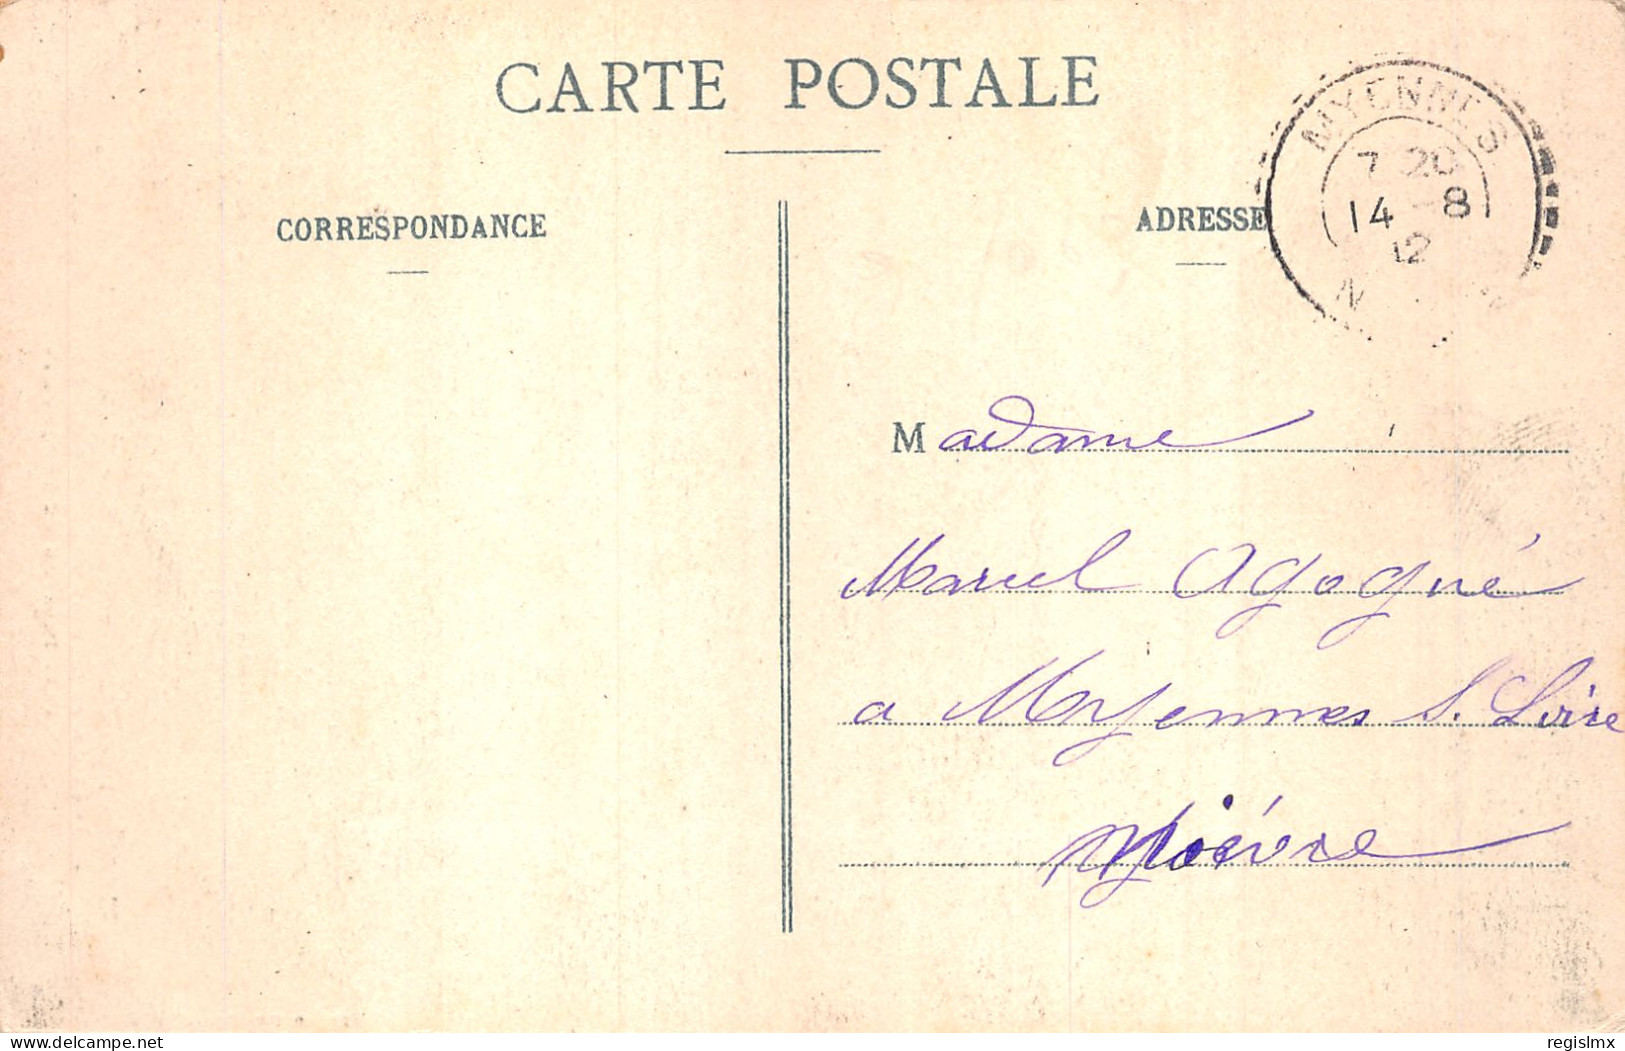 CARTE POSTALE
CORRESPONDANCE
ADRESSE
MYENNES
7 20
14 - 8
12
N
Madame
Marcel Agogué
a Myennes s. Loire
Nièvre
delcampe.net
regislmx